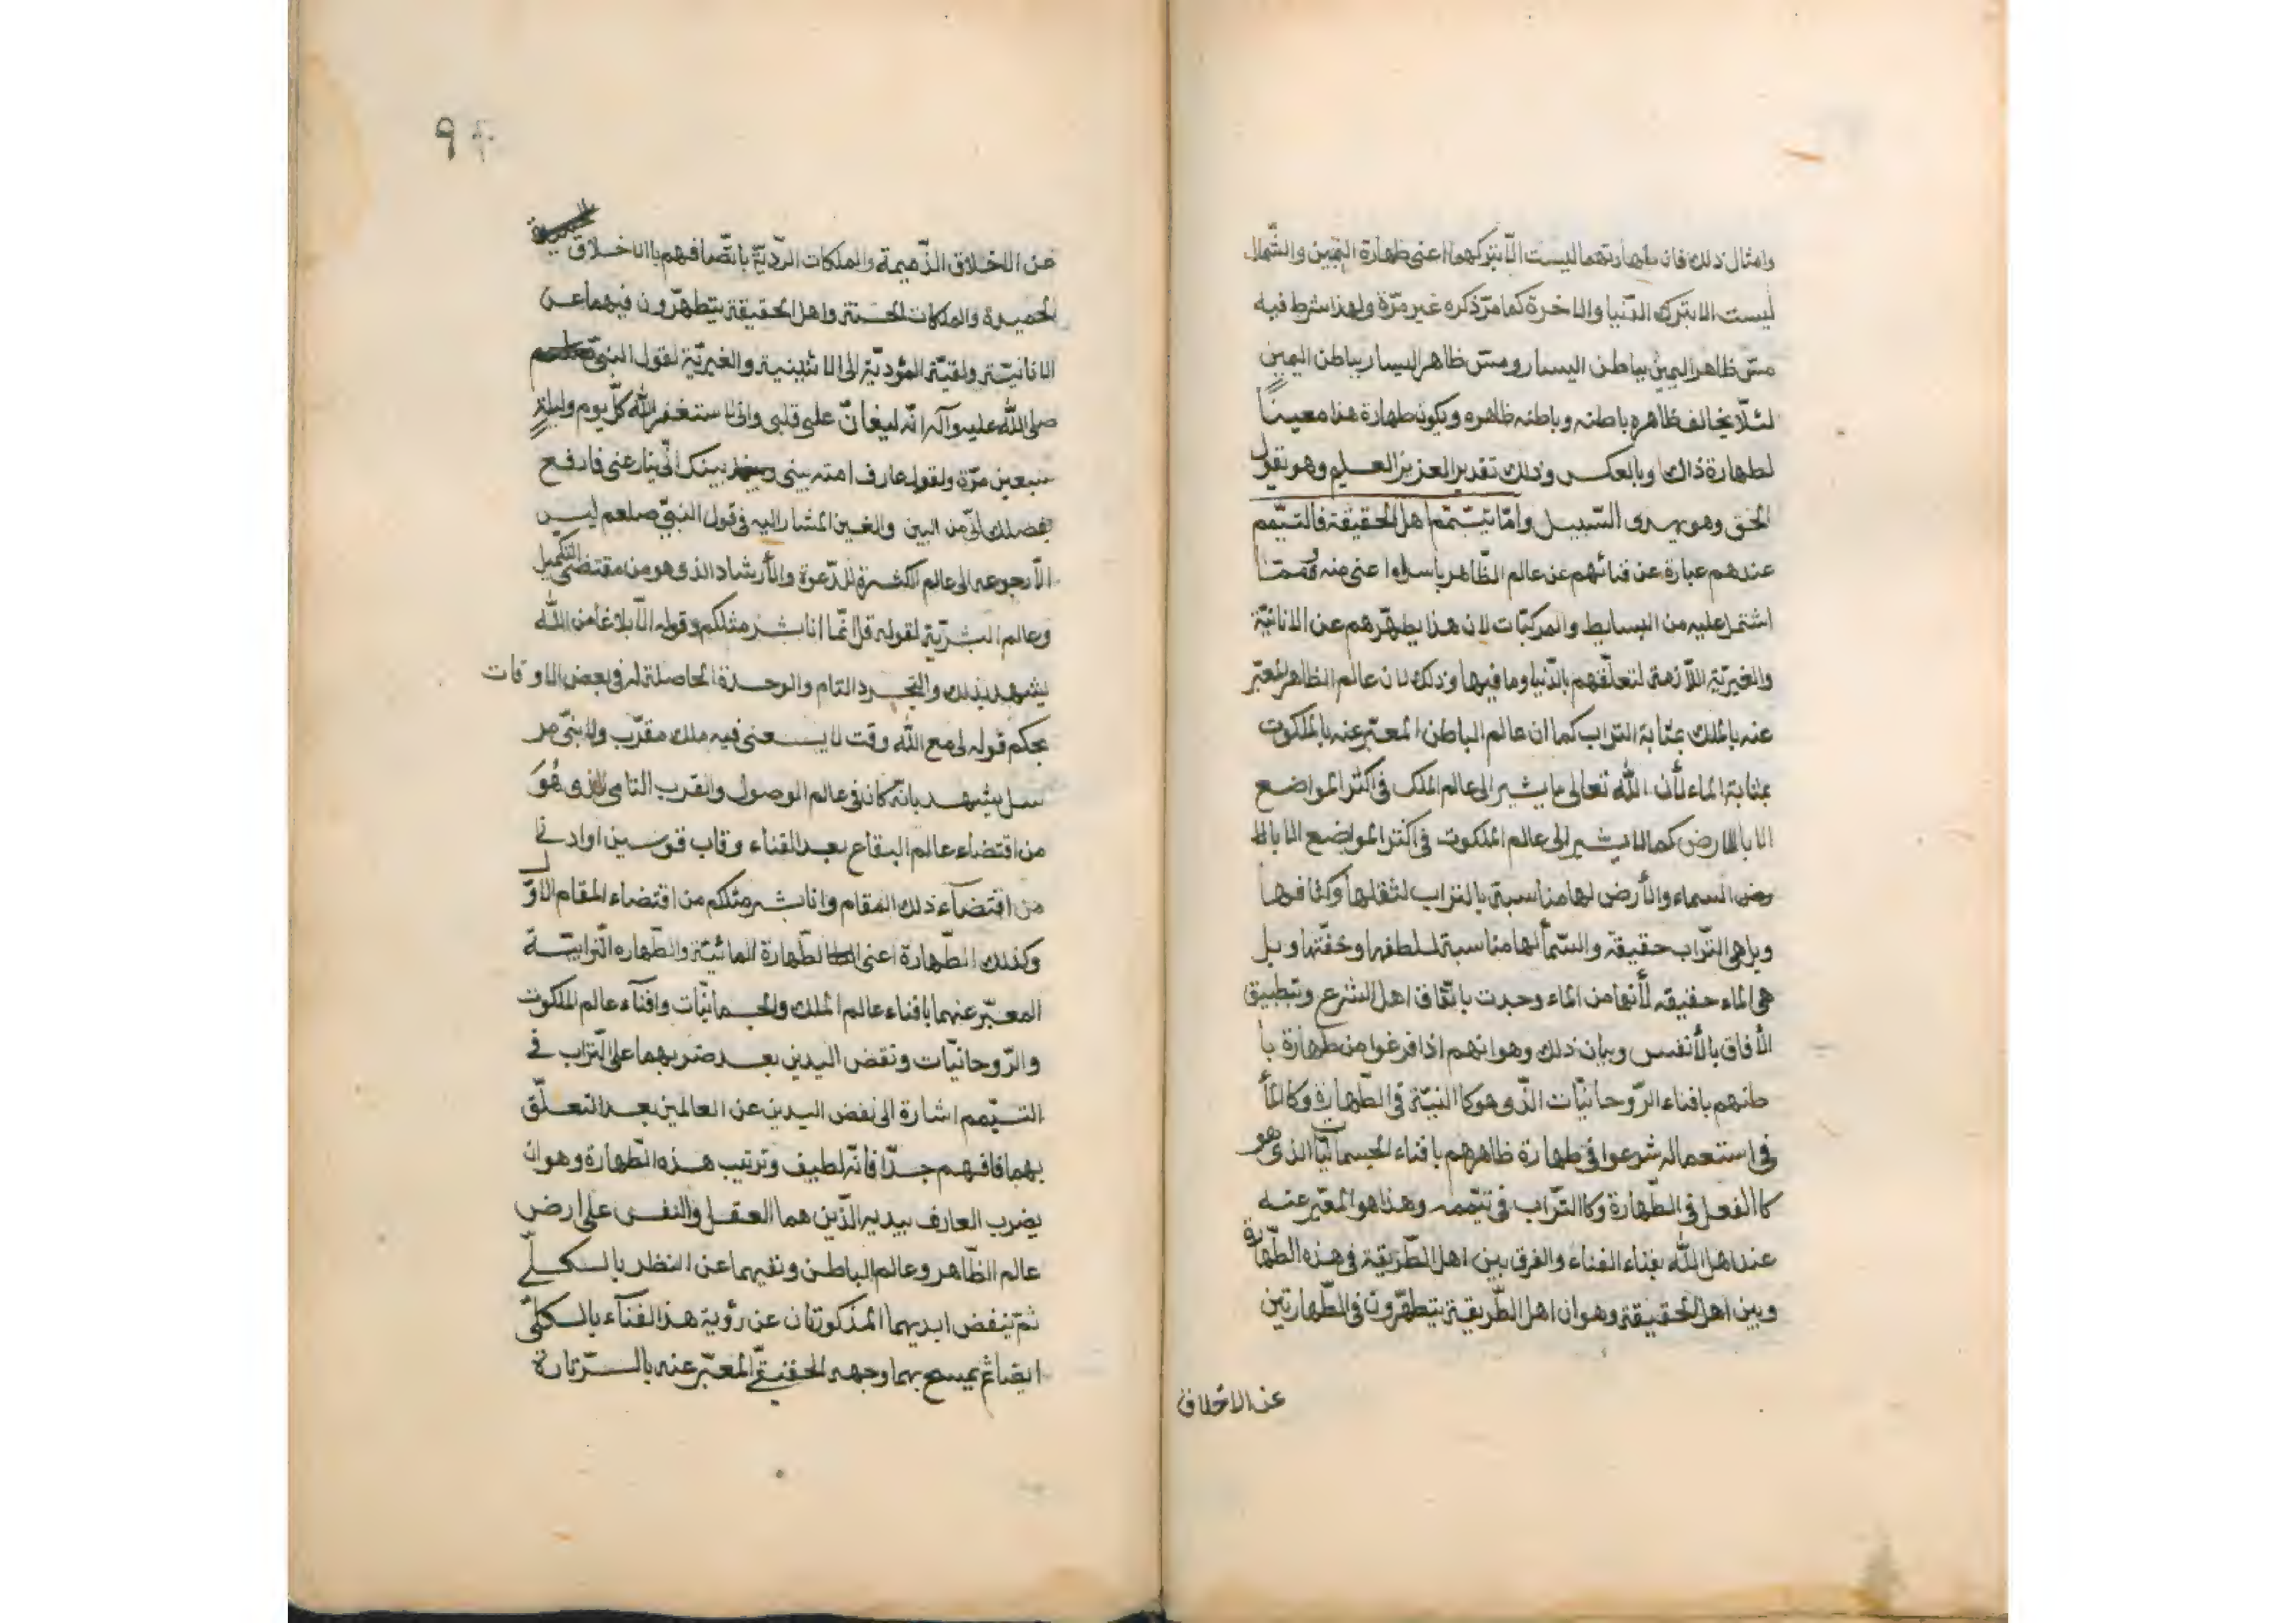 وامثال ذلك فان طهارتهما ليست الّا بتركهما اعنى طهارة اليمين والشّمال
ليست الا بترك الدّنيا والاخرة كما مرّ ذكره غير مرّة ولهذا شرط فيه
مسّ ظاهر اليمين بباطن اليسار ومسّ ظاهر اليسار بباطن اليمين
لئلّا يخالف ظاهره باطنه وباطنه ظاهره ويكون طهارة هذا معيناً
لطهارة ذاك وبالعكس وذلك تقدير العزيز العليم وهو يقول
الحق وهو يهدى السّبيل وامّا تيمّم اهل الحقيقة فالتيّمم
عندهم عبارة عن فنائهم عن عالم الظّاهر باسره اعنى منه فممّا
اشتمل عليه من البسايط والمركبّات لان هذا يطهّرهم عن الانانيّة
والغيريّة اللّازمة لتعلّقهم بالدّنيا وما فيها وذلك لان عالم الظاهر المعبّر
عنه بالملك بمثابة التراب كما ان عالم الباطن المعبّر عنه بالملكوت
بمثابة الماء لأن الله تعالى ما يشير الى عالم الملك فى اكثر المواضع
الا بالارض كما لا يشير الى عالم الملكوت فى اكثر المواضع الا بالا
رض السماء والأرض لها مناسبة بالتراب لثقلها وكثافها
وبل هى التّراب حقيقة والسّمآ لها مناسبة للطفها وخفّتها وبل
هى الماء حقيقه لأنها من الماء وجدت باتّفاق اهل الشرع وتطبيق
الأفاق بالأنفس وبيان ذلك وهو انهم اذا فرغوا من طهارة با
طنهم بافناء الرّوحانيّات الذّى هو كالنيّة فى الطّهارة وكالمأ
فى استعماله شرعوا فى طهارة ظاهرهم بافناء الجسمانيّات الذى هو
كالفعل فى الطّهارة وكالتّراب فى تيّممه وهذا هو المعبّر عنه
عند اهل الله بفناء الفناء والفرق بين اهل الطّريقة فى هذه الطّهارة
وبين اهل الحقيقة وهو ان اهل الطّريقة يتطهّرون فى الطّهارتين
عن الاخلاق
٩
عن الاخلاق الذّميمة والملكات الرّديّة باتّصافهم بالاخلاق
الحميدة والملكات الحسنة واهل الحقيقة يتطهّرون فيهما عن
الانانيّة ولقيّة المؤديّة الى الاثنينية والغيريّة لقول النبىّ
صلى الله عليه وآله انّه ليغانّ على قلبى وانى لاستغفر الله كلّ يوم وليلةٍ
سبعين مرّة ولقول عارف امته بينى وبينك انّى ينازعنى فارفع
بفضلك انّى من البين والغين المشار اليه فى قول النبىّ صلعم ليس
الّا رجوعه الى عالم الكثرة للدّعوة والأرشاد الذى هو من مقتضى التكميل
وعالم البشريّة لقوله قل انّما انا بشر مثلكم وقوله الّا بلاغاً من الله
يشهد بذلك والتجرد التام والوحدة الحاصلة له فى بعض الاوقات
بحكم قوله لى مع الله وقت لا يسعنى فيه ملك مقرّب ولا نبىّ مر
سل يشهد بانّه كان فى عالم الوصول والقرب التامى الذى هُوَ
من اقتضاء عالم البقاع بعد الفناء وقاب قوسين او ادنى
من اقتضآء ذلك المقام وانا بشر مثلكم من اقتضاء المقام الاوّل
وكذلك الطّهارة اعنى الطّهارة المائيّة والطّهاره التّرابيّة
المعبّر عنهما بافناء عالم الملك والجسمانيّات وافنآء عالم الملكوت
والرّوحانيّات ونفض اليدين بعد ضربهما على التّراب فى
التيّمم اشارة الى نفض اليدين عن العالمين بعد التعلّق
بهما فافهم جدّا فانّه لطيف وترتيب هذه الطّهارة وهو ان
يضرب العارف بيديه الذّين هما العقل والنفس على ارض
عالم الظّاهر وعالم الباطن ونفيهما عن النظر بالكلّى
ثم ينفض ايديهما المذكوتان عن رؤية هذا الفنآء بالكلىّ
ايضا ثم يمسح بهما وجهه الحقيقىّ المعبّر عنه بالسّر تارة